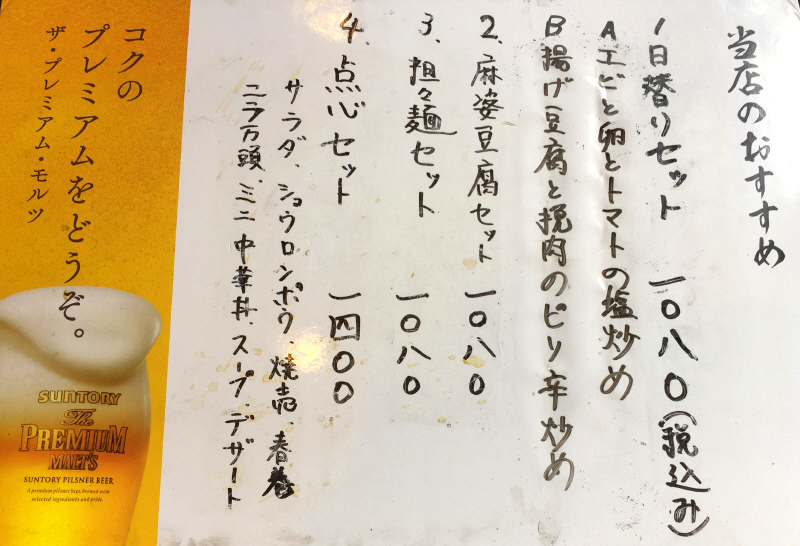 当店のおすすめ
1 日替りセット 一〇八〇(税込み)
A エビと卵とトマトの塩炒め
B 揚げ豆腐と挽肉のピリ辛炒め
2、麻婆豆腐セット 一〇八〇
3、担々麺セット 一〇八〇
4、点心セット 一四〇〇
サラダ、ショウロンポウ、焼売、春巻
ニラ万頭、ミニ中華丼、スープ、デザート
コクの
プレミアムをどうぞ。
ザ・プレミアム・モルツ
SUNTORY
The
PREMIUM
MALT'S
SUNTORY PILSNER BEER
A premium pilsner beer, brewed with
selected ingredients and pride.